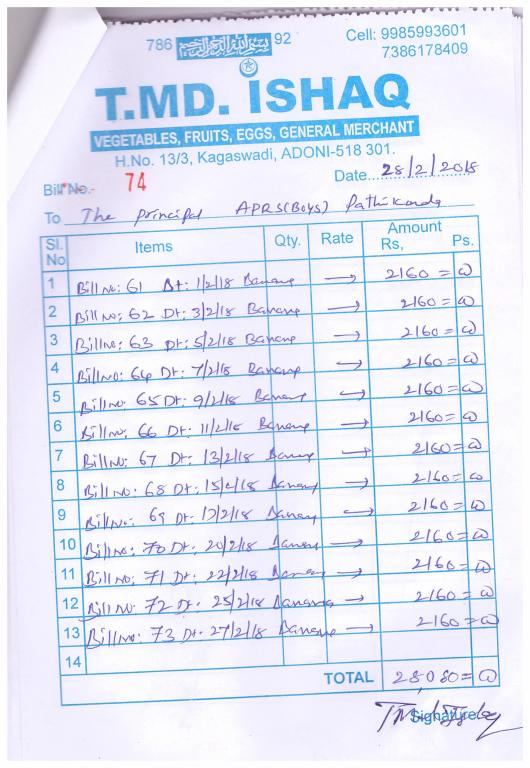 786 بسم الله الرحمن الرحيم 92
Cell: 9985993601
7386178409
T.MD. ISHAQ
VEGETABLES, FRUITS, EGGS, GENERAL MERCHANT
H.No. 13/3, Kagaswadi, ADONI-518 301.
Bill No.- 74 Date...28/2/2018
To The principal APRS(Boys) Pathikonda
Sl. No Items Qty. Rate Amount Rs, Ps.
1 Bill no: 61 Dt: 1/2/18 Banana → 2160=00
2 Bill no: 62 Dt: 3/2/18 Banana → 2160=00
3 Bill no: 63 Dt: 5/2/18 Banana → 2160=00
4 Bill no: 64 Dt: 7/2/18 Banana → 2160=00
5 Bill no: 65 Dt: 9/2/18 Banana → 2160=00
6 Bill no: 66 Dt: 11/2/18 Banana → 2160=00
7 Bill no: 67 Dt: 13/2/18 Banana → 2160=00
8 Bill no: 68 Dt: 15/2/18 Banana → 2160=00
9 Bill no: 69 Dt: 17/2/18 Banana → 2160=00
10 Bill no: 70 Dt: 20/2/18 Banana → 2160=00
11 Bill no: 71 Dt: 22/2/18 Banana → 2160=00
12 Bill no: 72 Dt: 25/2/18 Banana → 2160=00
13 Bill no: 73 Dt: 27/2/18 Banana → 2160=00
14
TOTAL 28,080=00
Signature